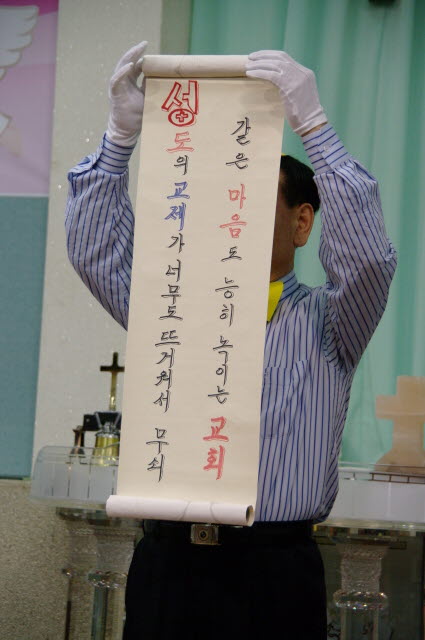 성도의 교제가 너무도 뜨거워서 무쇠
같은 마음도 능히 녹이는 교회